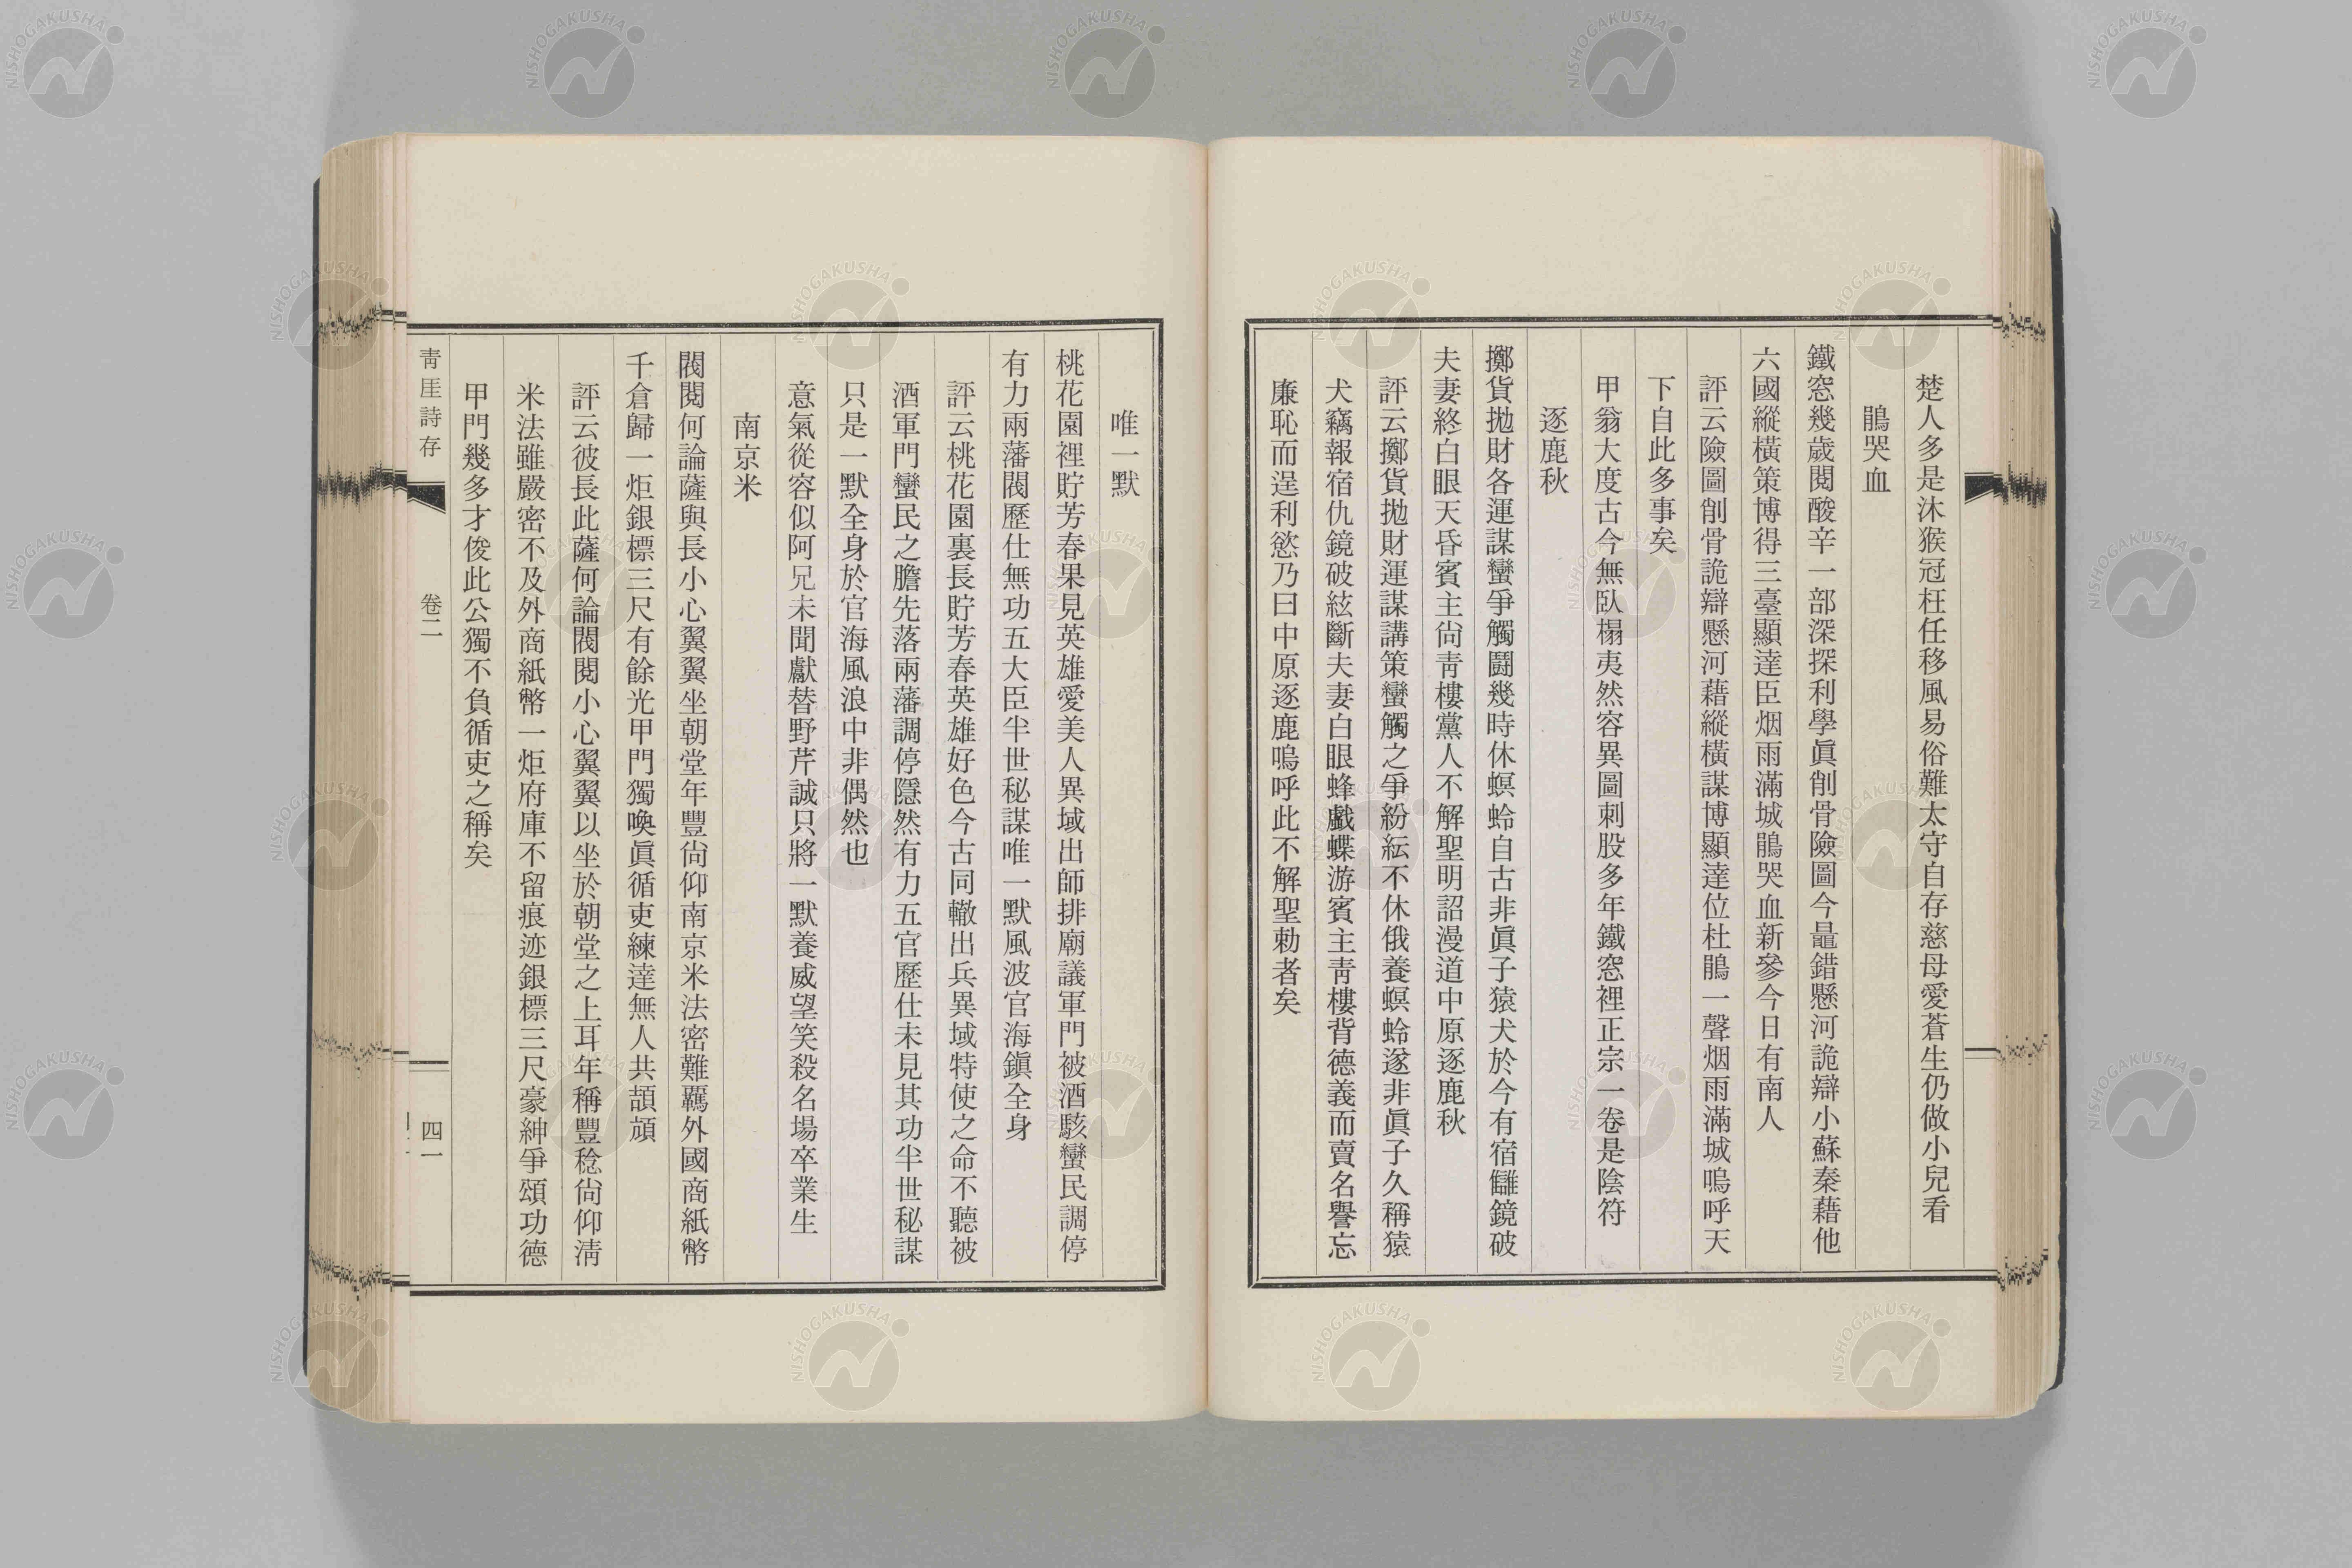 楚人多是沐猴冠枉任移風易俗難太守自存慈母愛蒼生仍做小兒看
鵑哭血
鐵窓幾歲閱酸辛一部深探利學眞削骨險圖今鼂錯懸河詭辯小蘇秦藉他
六國縱橫策博得三臺顯達臣烟雨滿城鵑哭血新參今日有南人
評云險圖削骨詭辯懸河藉縱橫謀博顯達位杜鵑一聲烟雨滿城嗚呼天
下自此多事矣
甲翁大度古今無臥榻夷然容異圖刺股多年鐵窓裡正宗一卷是陰符
逐鹿秋
擲貨拋財各運謀蠻爭觸鬪幾時休螟蛉自古非眞子猿犬於今有宿讎鏡破
夫妻終白眼天昏賓主尙靑樓黨人不解聖明詔漫道中原逐鹿秋
評云擲貨拋財運謀講策蠻觸之爭紛紜不休俄養螟蛉遂非眞子久稱猿
犬竊報宿仇鏡破絃斷夫妻白眼蜂戲蝶游賓主靑樓背德義而賣名譽忘
廉恥而逞利慾乃曰中原逐鹿嗚呼此不解聖勅者矣
唯一默
桃花園裡貯芳春果見英雄愛美人異域出師排廟議軍門被酒駭蠻民調停
有力兩藩閥歷仕無功五大臣半世秘謀唯一默風波官海鎭全身
評云桃花園裏長貯芳春英雄好色今古同轍出兵異域特使之命不聽被
酒軍門蠻民之膽先落兩藩調停隱然有力五官歷仕未見其功半世秘謀
只是一默全身於官海風浪中非偶然也
意氣從容似阿兄未聞獻替野芹誠只將一默養威望笑殺名場卒業生
南京米
閥閱何論薩與長小心翼翼坐朝堂年豐尙仰南京米法密難羈外國商紙幣
千倉歸一炬銀標三尺有餘光甲門獨喚眞循吏練達無人共頡頏
評云彼長此薩何論閥閱小心翼翼以坐於朝堂之上耳年稱豐稔尙仰淸
米法雖嚴密不及外商紙幣一炬府庫不留痕迹銀標三尺豪紳爭頌功德
甲門幾多才俊此公獨不負循吏之稱矣
靑厓詩存 卷二 四一
NISHOGAKUSHA